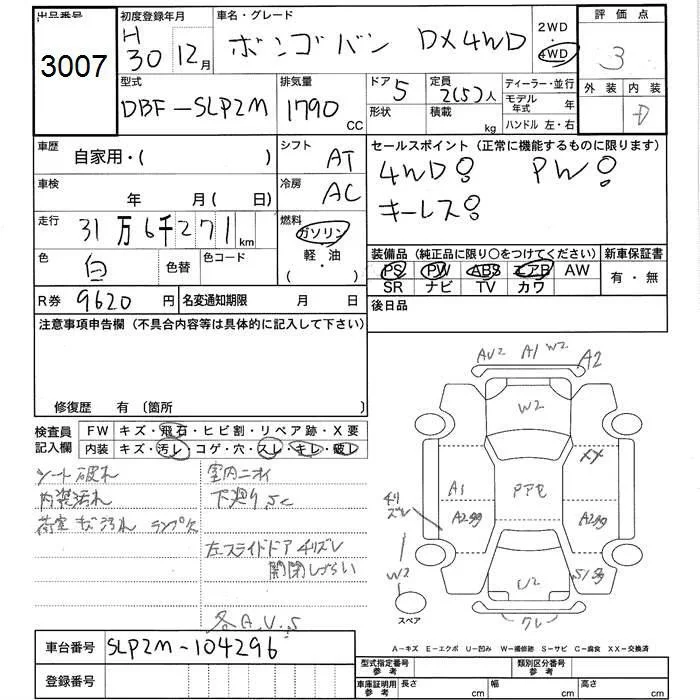 出品番号
3007
初度登録年月
H 30 12月
車名・グレード
ボンゴバン DX4WD
2WD
・
4WD
評価点
3
外装 内装
D
型式
DBF-SLP2M
排気量
1790 CC
ドア 5
形状
定員 2(5)人
積載 kg
ディーラー・並行
モデル年式 年
ハンドル 左・右
車歴
自家用・( )
シフト AT
車検
年 月( 日)
冷房 AC
走行
31万6千271km
燃料
ガソリン
軽・油
( ・ )
色 白
色替
色コード
R券 9620円
名変通知期限 月 日
セールスポイント(正常に機能するものに限ります)
4WD! PW!
キーレス!
装備品(純正品に限り〇をつけてください)
PS PW ABS エアB AW
SR ナビ TV カワ
新車保証書
有・無
後日品
注意事項申告欄(不具合内容等は具体的に記入して下さい)
修復歴 有 〔箇所 〕
検査員
記入欄
FW キズ・飛石・ヒビ割・リペア跡・X要
内装 キズ・汚レ・コゲ・穴・スレ・キレ・破レ
シート破れ
内装汚れ
荷室キズ汚れ ランプ欠
室内ニオイ
下廻りSC
左スライドドア チリズレ
開閉しずらい
各A.U.S
AU2 A1 W2 A2
W2
XX
A1
PアE
A299
A299
チリズレ
W2
U2
S1多
クレ
スペア
A-キズ E-エクボ U-凹み W-補修跡 S-サビ C-腐食 XX-交換済
車台番号 SLP2M-104296
登録番号
型式指定番号
参考
類別区分番号
参考
車庫証明用
参考
長さ cm 幅 cm 高さ cm